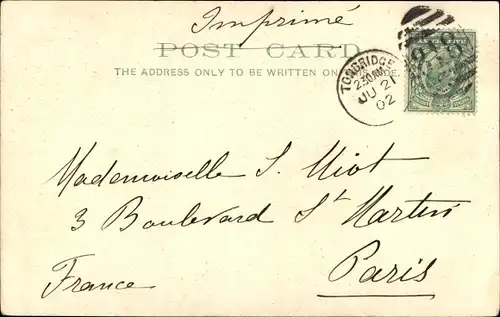 Imprimé
POST CARD.
THE ADDRESS ONLY TO BE WRITTEN ON SIDE.
TONBRIDGE
2.30PM
JU 21
02
Mademoiselle S. Miot
3 Boulevard St Martin
Paris
France